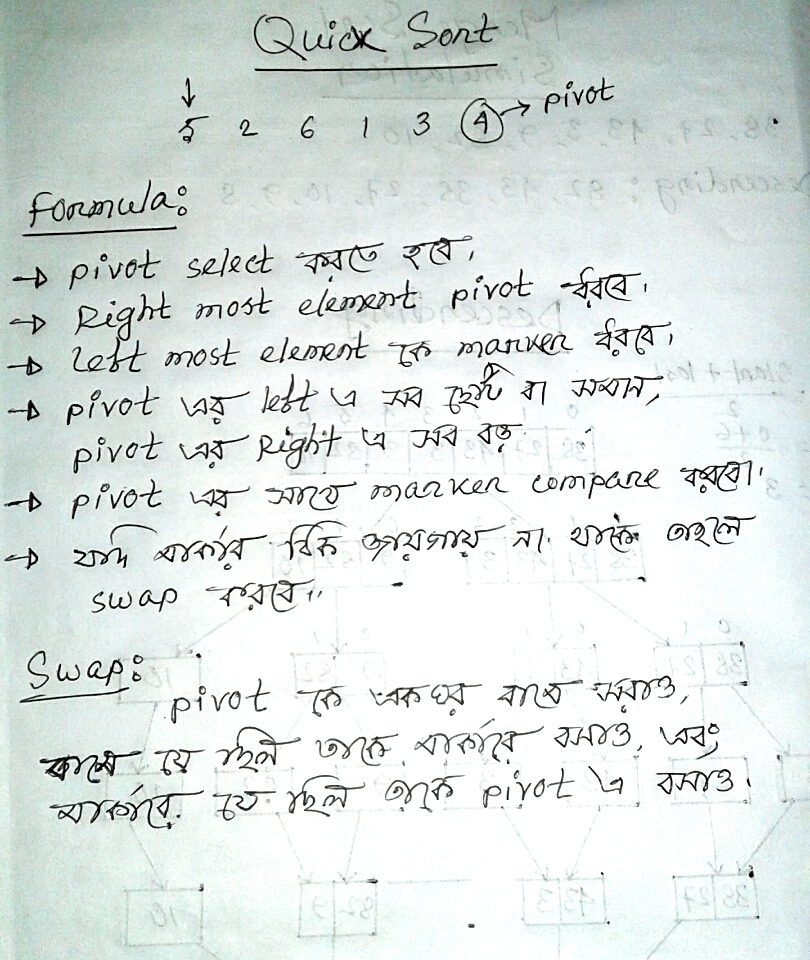 Quick Sort
↓
5 2 6 1 3 4 → pivot
Formula:
→ pivot select করতে হবে,
→ Right most element pivot ধরবে।
→ left most element কে marker ধরবে,
→ pivot এর left এ সব ছোট বা সমান,
pivot এর Right এ সব বড়
→ pivot এর সাথে marker compare করবো।
→ যদি মার্কার ঠিক জায়গায় না থাকে তাহলে
swap করবে।।
Swap:
pivot কে একঘর বামে সরাও,
বামে যে ছিল তাকে মার্কারে বসাও, এবং
মার্কারে যে ছিল তাকে pivot এ বসাও।